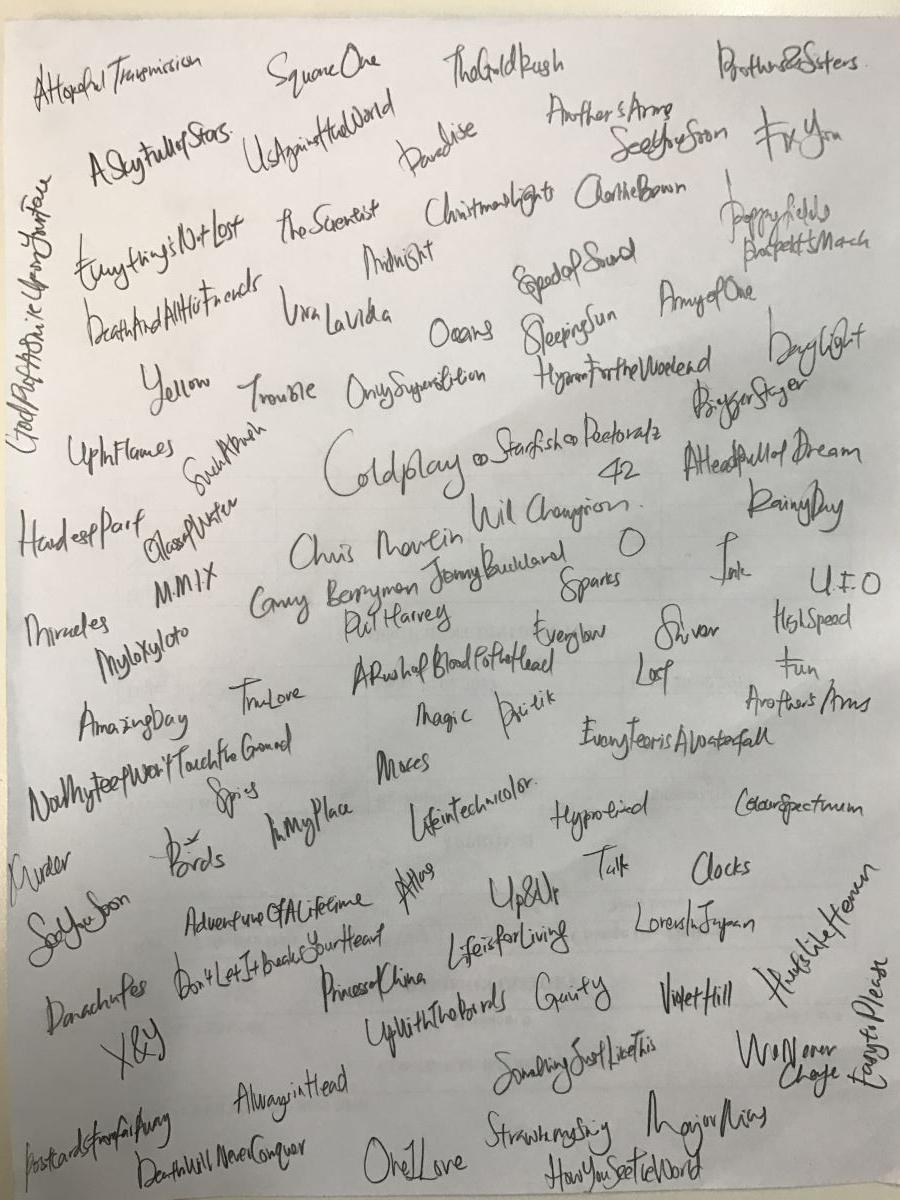 AHopefulTransmission SquareOne TheGoldRush Brothers&Sisters
ASkyFullofStars UsAgainsttheWorld Paradise Another'sArms
SeeYouSoon FixYou
GodPutASmileUponYourFace
Everything'sNotLost TheScientist ChristmasLights CharlieBrown Poppyfields
DeathAndAllHisFriends Midnight SpeedofSound Prospekt'sMarch
VivaLaVida Oceans SleepingSun ArmyofOne
Yellow Trouble OnlySuperstition HymnForTheWeekend DayLight
UpInFlames SuchARush Coldplay ∞ Starfish ∞ Pectoralz BiggerStronger
HardestPart GlassofWater 42 AHeadfullofDream
Chris Martin Will Champion RainyDay
Miracles M.M.I.X Guy Berryman JonnyBuckland O Ink U.F.O
MyloXyloto Phil Harvey Sparks
Everglow Shiver HighSpeed
AmazingDay TrueLove ARushofBloodtotheHead Lost Fun
NowMyFeetWon'tTouchTheGround Magic Politik Another'sArms
Spies Moses EveryTearisAWaterfall
Murder Birds InMyPlace Lifeintechnicolor Hypnotised ColourSpectrum
SeeYouSoon AdventureOfALifetime Atlas Up&Up Talk Clocks
Parachutes Don'tLetItBreakYourHeart LifeisforLiving LoversInJapan
X&Y PrincessofChina HurtsLikeHeaven
UpWithTheBirds Gravity VioletHill
EasytoPlease
PostcardsfromfarAway AlwaysinHead SomethingJustLikeThis WeNever
Change
DeathWillNeverConquer OneILove StrawberrySwing MajorMinus
HowYouSeetheWorld